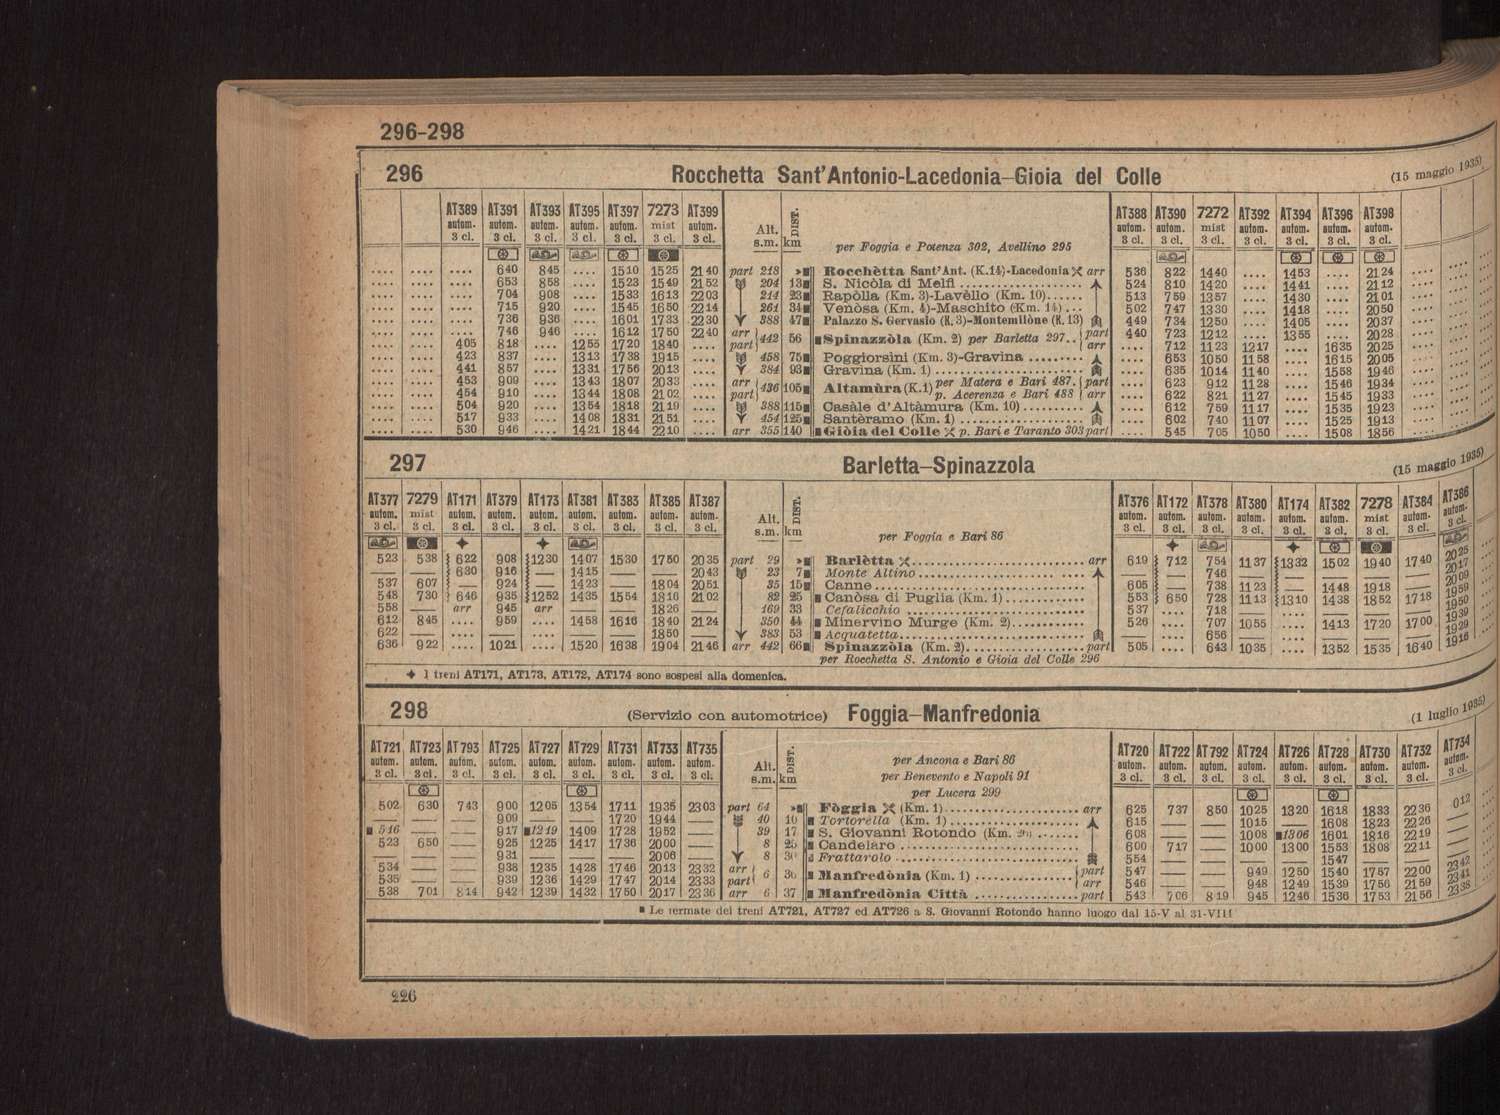 296-298
296 Rocchetta Sant'Antonio-Lacedonia—Gioia del Colle (15 maggio 1935)
AT389 AT391 AT393 AT395 AT397 7273 AT399 AT388 AT390 7272 AT392 AT394 AT396 AT398
autom. autom. autom. autom. autom. mist autom. Alt. DIST. autom. autom. mist autom. autom. autom. autom.
3 cl. 3 cl. 3 cl. 3 cl. 3 cl. 3 cl. 3 cl. s.m. km per Foggia e Potenza 302, Avellino 295 3 cl. 3 cl. 3 cl. 3 cl. 3 cl. 3 cl. 3 cl.
.... .... .... 640 845 .... 1510 1525 2140 part 218 »■ Rocchètta Sant'Ant. (K.14)-Lacedonia arr 536 822 1440 .... 1453 .... 2124
.... .... .... 653 858 .... 1523 1549 2152 204 13■ S. Nicòla di Melfi 524 810 1420 .... 1441 .... 2112
.... .... .... 704 908 .... 1533 1613 2203 214 23■ Rapòlla (Km. 3)-Lavèllo (Km. 10)...... 513 759 1357 .... 1430 .... 2101
.... .... .... 715 920 .... 1545 1650 2214 261 34■ Venòsa (Km. 4)-Maschito (Km. 14)... 502 747 1330 .... 1418 .... 2050
.... .... .... 736 936 .... 1601 1733 2230 388 47■ Palazzo S. Gervasio (K.3)-Montemilòne (K.13) 449 734 1250 .... 1405 .... 2037
.... .... .... 746 946 .... 1612 1750 2240 arr 442 56 ■Spinazzòla (Km. 2) per Barletta 297.. part 440 723 1212 .... 1355 .... 2028
.... .... 405 818 .... 1255 1720 1840 .... part arr .... 712 1123 1217 .... 1635 2025
.... .... 423 837 .... 1313 1738 1915 .... 458 75■ Poggiorsini (Km. 3)-Gravina ......... .... 653 1050 1158 .... 1615 2005
.... .... 441 857 .... 1331 1756 2013 .... 384 93■ Gravina (Km. 1) .... 635 1014 1140 .... 1558 1946
.... .... 453 909 .... 1343 1807 2033 .... arr 436 105■ Altamùra (K.1) per Matera e Bari 487. part .... 623 912 1128 .... 1546 1934
.... .... 454 910 .... 1344 1808 2102 .... part p. Acerenza e Bari 488 arr .... 622 821 1127 .... 1545 1933
.... .... 504 920 .... 1354 1818 2119 .... 388 115■ Casàle d'Altàmura (Km. 10) .... 612 759 1117 .... 1535 1923
.... .... 517 933 .... 1408 1831 2151 .... 454 125■ Santèramo (Km. 1) .... 602 740 1107 .... 1525 1913
.... .... 530 946 .... 1421 1844 2210 .... arr 355 140 ■Giòia del Colle p. Bari e Taranto 303 part .... 545 705 1050 .... 1508 1856
297 Barletta—Spinazzola (15 maggio 1935)
AT377 7279 AT171 AT379 AT173 AT381 AT383 AT385 AT387 AT376 AT172 AT378 AT380 AT174 AT382 7278 AT384 AT386
autom. mist autom. autom. autom. autom. autom. autom. autom. Alt. DIST. autom. autom. autom. autom. autom. autom. mist autom. autom.
3 cl. 3 cl. 3 cl. 3 cl. 3 cl. 3 cl. 3 cl. 3 cl. 3 cl. s.m. km per Foggia e Bari 86 3 cl. 3 cl. 3 cl. 3 cl. 3 cl. 3 cl. 3 cl. 3 cl. 3 cl.
523 538 622 908 1230 1407 1530 1750 2035 part 29 »■ Barlètta arr 619 712 754 1137 1332 1502 1940 1740 2025
— — 630 916 — 1415 — — 2043 23 7■ Monte Altino — — 746 — — — — — 2017
537 607 924 — 1423 — 1804 2051 35 15■ Canne 605 738 1123 — 1448 1918 — 2009
548 730 646 935 1252 1435 1554 1816 2102 82 25 ■ Canòsa di Puglia (Km. 1) 553 650 728 1113 1310 1438 1852 1718 1959
558 — arr 945 arr — — 1826 — 169 33 Cefalicchio 537 .... 718 — .... — — — 1950
612 845 .... 959 .... 1458 1616 1840 2124 350 44 ■ Minervino Murge (Km. 2) 526 .... 707 1055 .... 1413 1720 1700 1939
622 — .... — .... — — 1850 — 383 53 ■ Acquatetta — .... 656 — .... — — — 1929
636 922 .... 1021 .... 1520 1638 1904 2146 arr 442 66■ Spinazzòla (Km. 2) part 505 .... 643 1035 .... 1352 1535 1640 1916
per Rocchetta S. Antonio e Gioia del Colle 296
✦ I treni AT171, AT173, AT172, AT174 sono sospesi alla domenica.
298 (Servizio con automotrice) Foggia—Manfredonia (1 luglio 1935)
AT721 AT723 AT793 AT725 AT727 AT729 AT731 AT733 AT735 per Ancona e Bari 86 AT720 AT722 AT792 AT724 AT726 AT728 AT730 AT732 AT734
autom. autom. autom. autom. autom. autom. autom. autom. autom. Alt. DIST. per Benevento e Napoli 91 autom. autom. autom. autom. autom. autom. autom. autom. autom.
3 cl. 3 cl. 3 cl. 3 cl. 3 cl. 3 cl. 3 cl. 3 cl. 3 cl. s.m. km per Lucera 299 3 cl. 3 cl. 3 cl. 3 cl. 3 cl. 3 cl. 3 cl. 3 cl. 3 cl.
502 630 743 900 1205 1354 1711 1935 2303 part 64 »■ Fòggia (Km. 1) arr 625 737 850 1025 1320 1618 1833 2236 012
— — 909 — — 1720 1944 — 40 10 ■ Tortorella (Km. 1) 615 — — 1015 — 1608 1823 2226
■516 — — 917 ■1219 1409 1728 1952 — 39 17 ■ S. Giovanni Rotondo (Km. 26) 608 — — 1008 ■1306 1601 1816 2219 —
523 650 — 925 1225 1417 1736 2000 — 8 25 ■ Candelaro 600 717 — 1000 1300 1553 1808 2211 —
— — — 931 — — — 2006 — 8 30 Frattarolo 554 — — — — 1547 — — —
534 — — 938 1235 1428 1746 2013 2332 arr 6 36 ■ Manfredònia (Km. 1) part 547 — — 949 1250 1540 1757 2200 2342
535 — — 939 1236 1429 1747 2014 2333 part arr 546 — — 948 1249 1539 1756 2159 2341
538 701 814 942 1239 1432 1750 2017 2336 arr 6 37 ■ Manfredònia Città part 543 706 819 945 1246 1536 1753 2156 2338
■ Le fermate dei treni AT721, AT727 ed AT726 a S. Giovanni Rotondo hanno luogo dal 15-V al 31-VIII
226